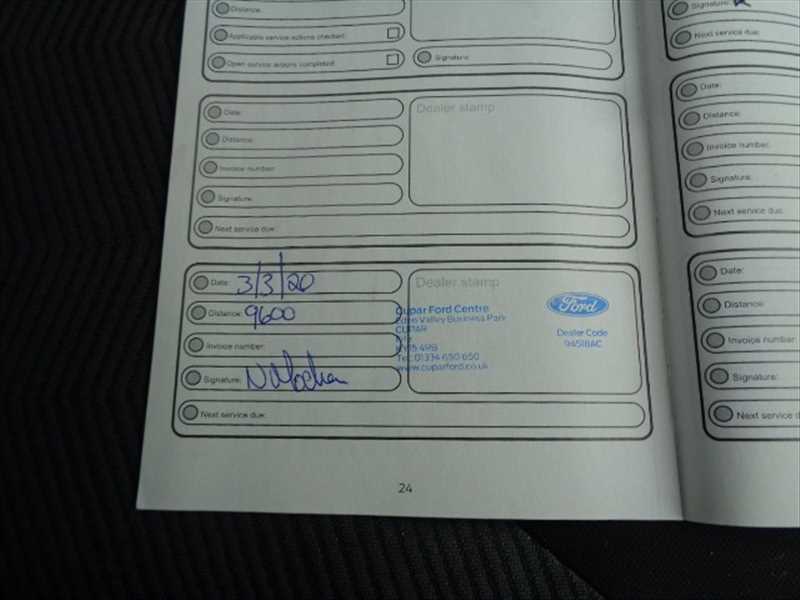 Distance:
Applicable service actions checked:
Open service actions completed:
Signature:
Date:
Distance:
Invoice number:
Signature:
Next service due:
Dealer stamp
Date: 3/3/20
Distance: 9600
Invoice number:
Signature:
Next service due:
Dealer stamp
Cupar Ford Centre
Eden Valley Business Park
CUPAR
Fife
KY15 4RB
Tel: 01334 650 650
www.cuparford.co.uk
Ford
Dealer Code
24
Signature:
Next service due:
Date:
Distance:
Invoice number:
Signature:
Next service due:
Date:
Distance:
Invoice number
Signature:
Next service d